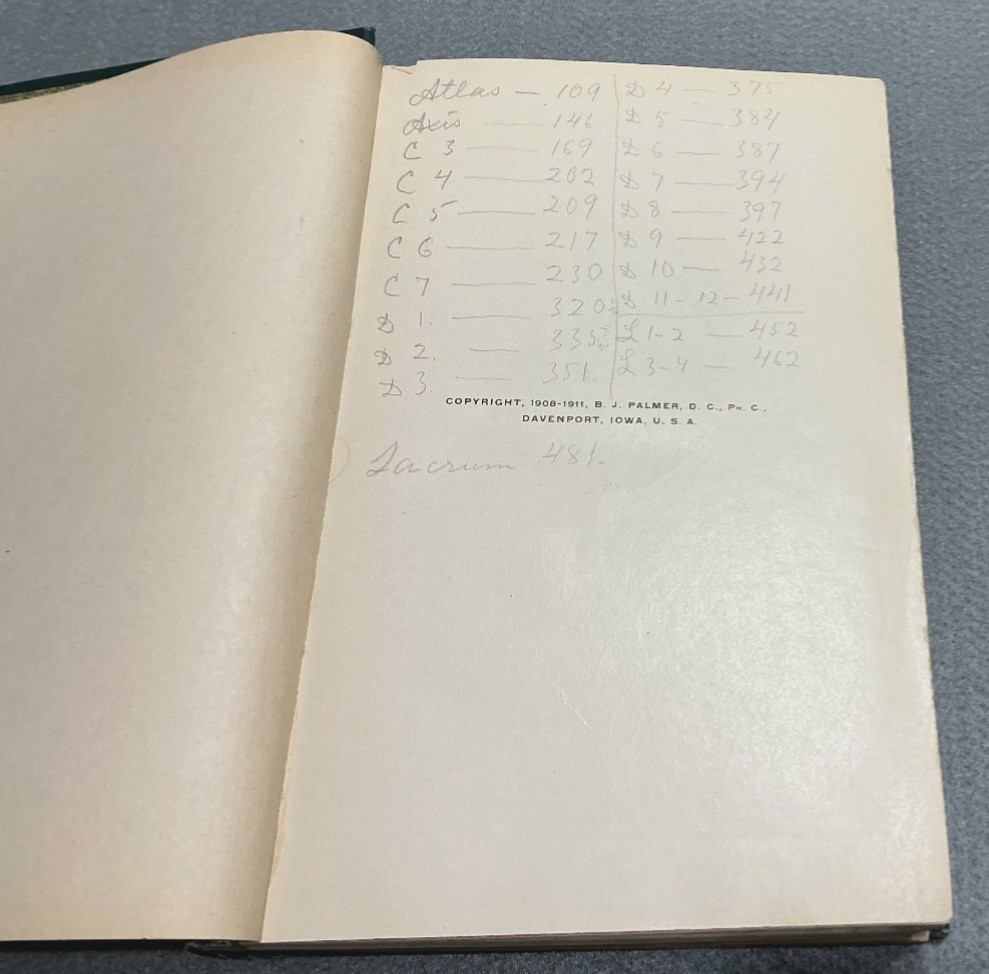 Atlas — 109
Axis — 146
C 3 — 169
C 4 — 202
C 5 — 209
C 6 — 217
C 7 — 230
D 1. — 320
D 2. — 335
D 3. — 351.
D 4 — 375
D 5 — 384
D 6 — 387
D 7 — 394
D 8 — 397
D 9 — 422
D 10 — 432
D 11 - 12 — 441
L 1-2 — 452
L 3-4 — 462
COPYRIGHT, 1908-1911, B. J. PALMER, D. C., PH. C.,
DAVENPORT, IOWA, U. S. A.
Sacrum 481-